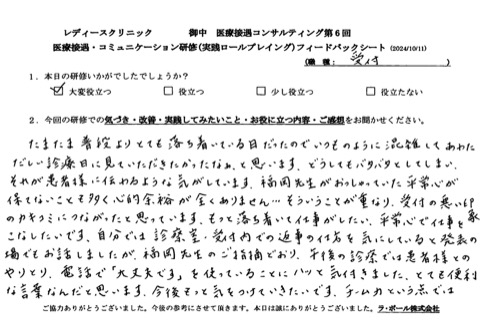 レディースクリニック　御中　医療接遇コンサルティング第６回
医療接遇・コミュニケーション研修（実践ロールプレイング）フィードバックシート（2024/10/11）
（職種：受付）
１．本日の研修いかがでしたでしょうか？
☑大変役立つ　□役立つ　□少し役立つ　□役立たない
２．今回の研修での気づき・改善・実践してみたいこと・お役に立つ内容・ご感想をお聞かせください。
たまたま普段よりとても落ち着いている日だったのでいつものように混雑してあわた
だしい診療日に見ていただきたかったなぁ、と思います。どうしてもバタバタとしてしまい、
それが患者様に伝わるような気がしています。福岡先生がおっしゃっていた平常心が
保てないことも多く心的余裕が全くありません…そういうことが重なり、受付の悪い印象
のカキコミにつながったと思っています。もっと落ち着いて仕事がしたい、平常心で仕事を
こなしたいです。自分では診察室・受付内での返事の仕方を気にしていると発表の
場でもお話しましたが、福岡先生のご指摘どおり、午後の診療では患者様との
やりとり、電話で「大丈夫です」を使っていることにハッと気付きました。とても便利
な言葉なんだと思います。今後もっと気をつけていきたいです。チーム力という点では
ご協力ありがとうございました。今後の参考にさせて頂きます。本日は誠にありがとうございました。ラ・ポール株式会社